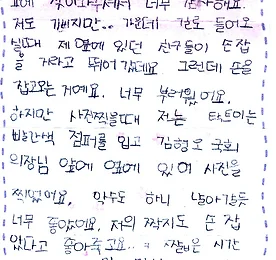 너무 감사해요.
저도 기뻤지만.. 가운데 길로 들어오
실때 제 옆에 있던 친구들이 손 잡
을 거라고 뛰어 갔데요 그런데 손을
잡고왔는거예요. 너무 부러웠어요.
하지만 사진찍을때 저는 타트미는
빨간색 점퍼를 입고 김형오 국회
의장님 앞에 옆에 있어 사진을
찍었어요. 악수도 하니 날아갈듯
너무 좋았어요. 저의 짝지도 손 잡
었다고 좋아죽고요.. 짧은 시간